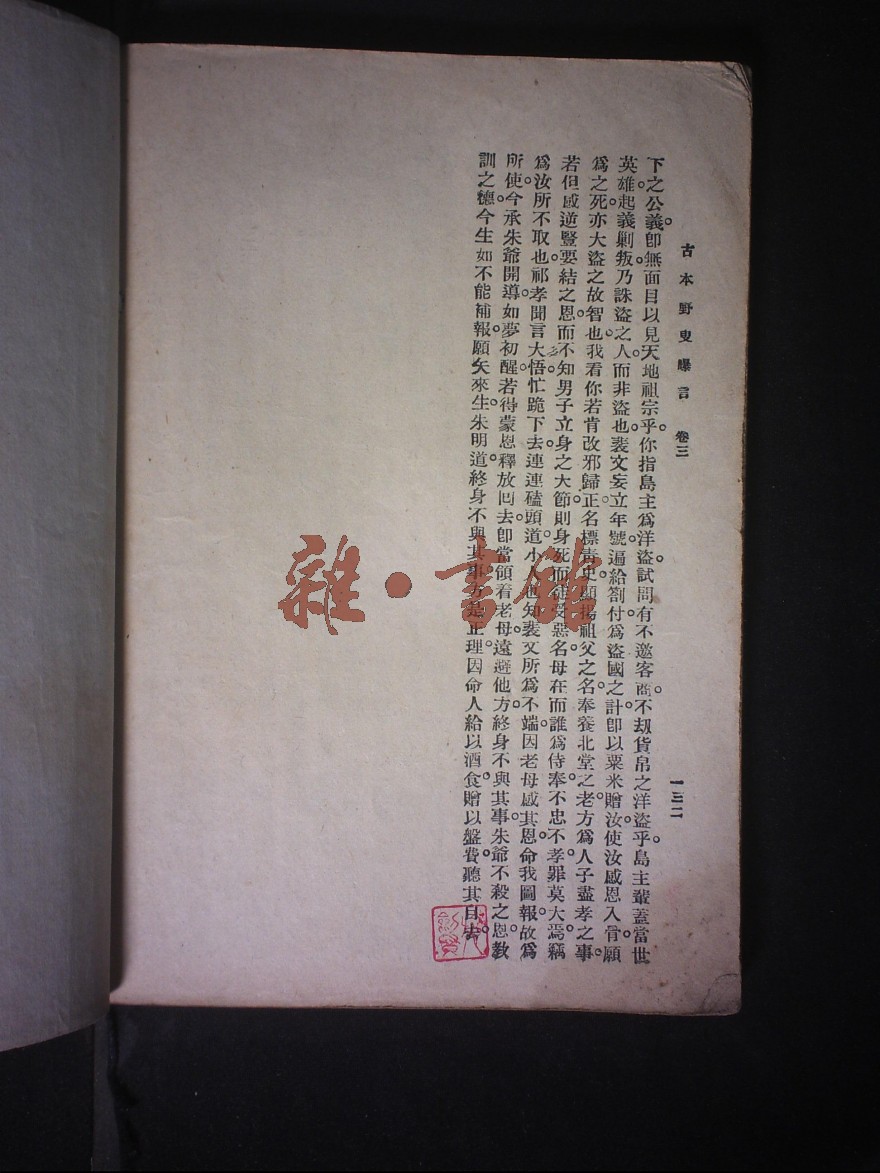 古本野叟曝言　卷三　一三二
下之公義。卽無面目以見天地祖宗乎。你指島主爲洋盜。試問有不邀客商。不刧貨帛之洋盜乎。島主輩蓋當世
英雄。起義剿叛。乃誅盜之人。而非盜也。裴文妄立年號。遍給劄付。爲盜國之計。卽以粟米贈汝。使汝感恩入骨。願
爲之死。亦大盜之故智也。我看你若肯改邪歸正。名標靑史。顯揚祖父之名。奉養北堂之老。方爲人子盡孝之事。
若但感逆豎要結之恩。而不知男子立身之大節。則身死而徒受惡名。母在而誰爲侍奉。不忠不孝。罪莫大焉。竊
爲汝所不取也。祁孝聞言大悟。忙跪下去。連連磕頭道。小人也知裴文所爲不端。因老母感其恩。命我圖報。故爲
所使。今承朱爺開導。如夢初醒。若得蒙恩釋放回去。卽當領着老母。遠避他方。終身不與其事。朱爺不殺之恩。教
訓之德。今生如不能補報。願矢來生。朱明道。終身不與其事。方是正理。因命人給以酒食。贈以盤費。聽其自去。
雜·書館